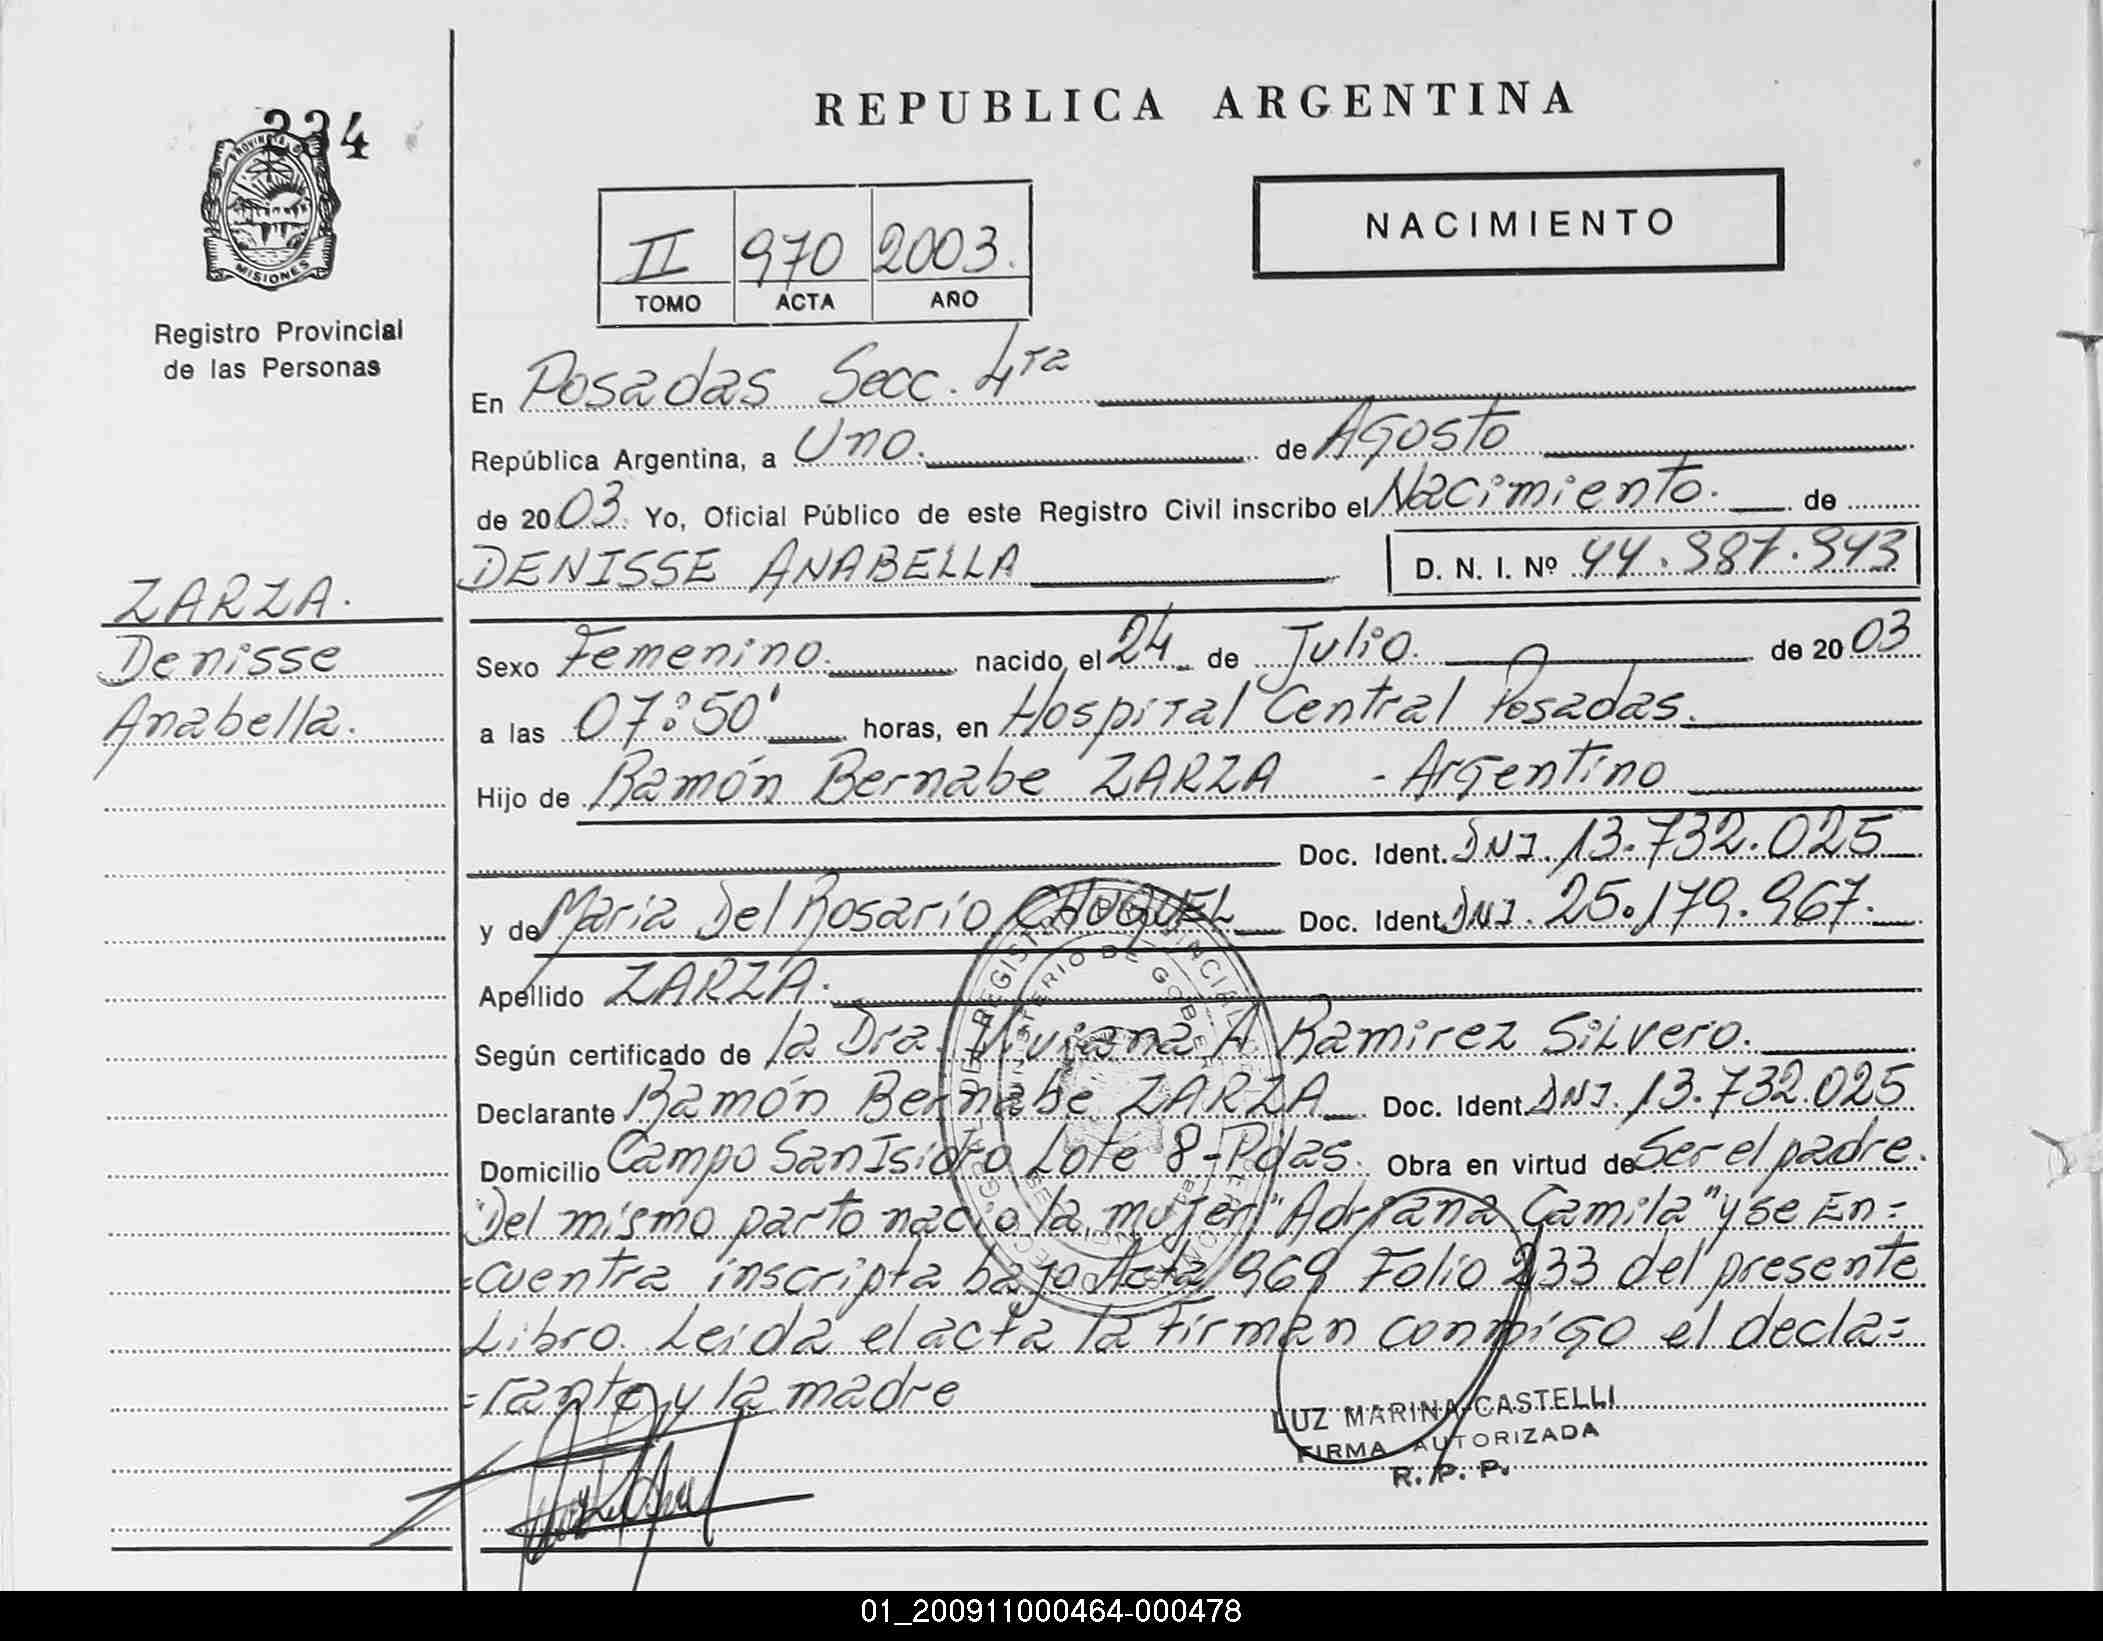 234
PROVINCIA D
MISIONES
Registro Provincial
de las Personas
REPUBLICA ARGENTINA
NACIMIENTO
II 970 2003.
TOMO ACTA AÑO
En Posadas Secc. 4ta
República Argentina, a Uno. de Agosto
de 2003. Yo, Oficial Público de este Registro Civil inscribo el Nacimiento. de
DENISSE ANABELLA D. N. I. Nº 44.987.943
ZARZA.
Denisse
Anabella.
Sexo Femenino. nacido el 24 de Julio. de 2003
a las 07:50' horas, en Hospital Central Posadas.
Hijo de Ramón Bernabe ZARZA - Argentino
Doc. Ident. DNI. 13.732.025
y de Maria Del Rosario CHUQUEL Doc. Ident. DNI. 25.179.967.
Apellido ZARZA.
Según certificado de la Dra. Viviana A Ramirez Silvero.
Declarante Ramón Bernabe ZARZA Doc. Ident. DNI. 13.732.025
Domicilio Campo San Isidro Lote 8-Pdas. Obra en virtud de Ser el padre.
Del mismo parto nacio la mujer "Adriana Camila" y se En=
=cuentra inscripta bajo Acta 969 Folio 233 del presente
Libro. Leida el acta la firman conmigo el decla=
=rante y la madre
LUZ MARINA CASTELLI
FIRMA AUTORIZADA
R. P. P.
01_200911000464-000478